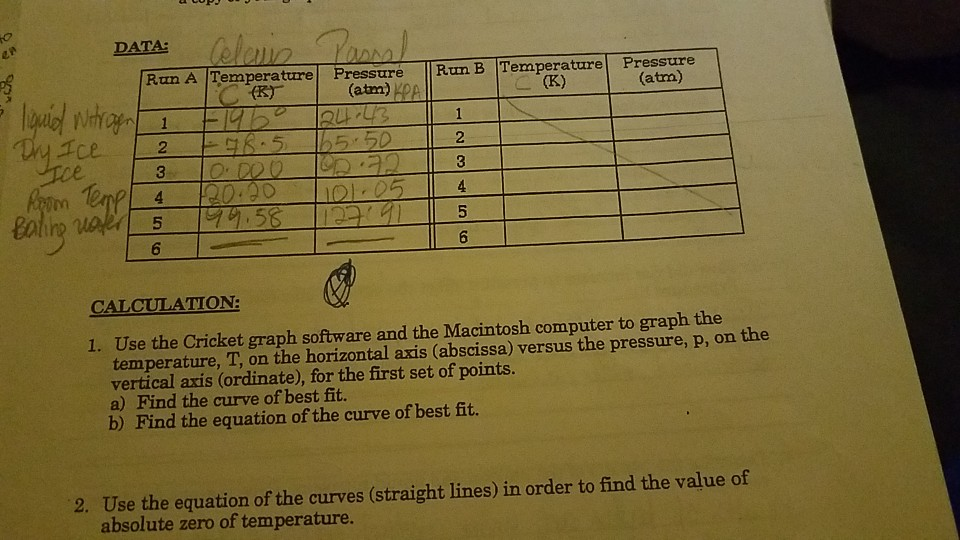 DATA:
Celcius Pascal
Run A Temperature Pressure Run B Temperature Pressure
C (K) (atm) KPA C (K) (atm)
liquid Nitrogen 1 -196° 24.43 1
Dry Ice 2 -78.5 65.50 2
Ice 3 0.000 92.72 3
Room Temp 4 20.20 101.05 4
Boling water 5 99.58 127.91 5
6 — — 6
CALCULATION:
1. Use the Cricket graph software and the Macintosh computer to graph the
temperature, T, on the horizontal axis (abscissa) versus the pressure, p, on the
vertical axis (ordinate), for the first set of points.
a) Find the curve of best fit.
b) Find the equation of the curve of best fit.
2. Use the equation of the curves (straight lines) in order to find the value of
absolute zero of temperature.